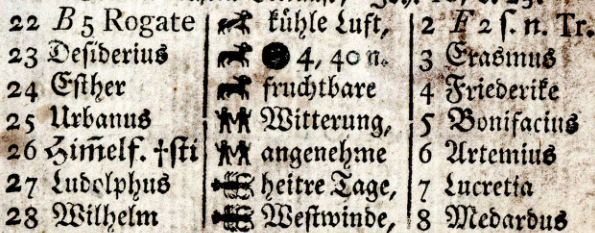 22 B 5 Rogate kühle Luft, 2 F 2 ſ. n. Tr.
23 Deſiderius 4, 40 n. 3 Erasmus
24 Eſther fruchtbare 4 Friederike
25 Urbanus Witterung, 5 Bonifacius
26 Him̄elf. †ſti angenehme 6 Artemius
27 Ludolphus heitre Tage, 7 Lucretia
28 Wilhelm Weſtwinde, 8 Medardus